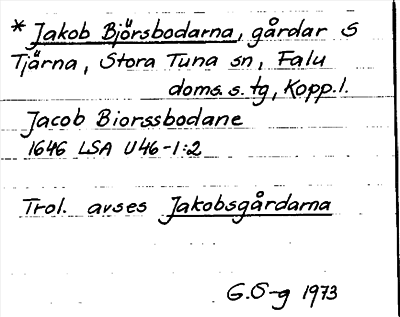 * Jakob Björsbodarna, gårdar S
Tjärna, Stora Tuna sn, Falu
doms. s. tg, Kopp. l.
Jacob Biorssbodane
1646 LSA U46-1:2
Trol. avses Jakobsgårdarna
G.Ö-g 1973